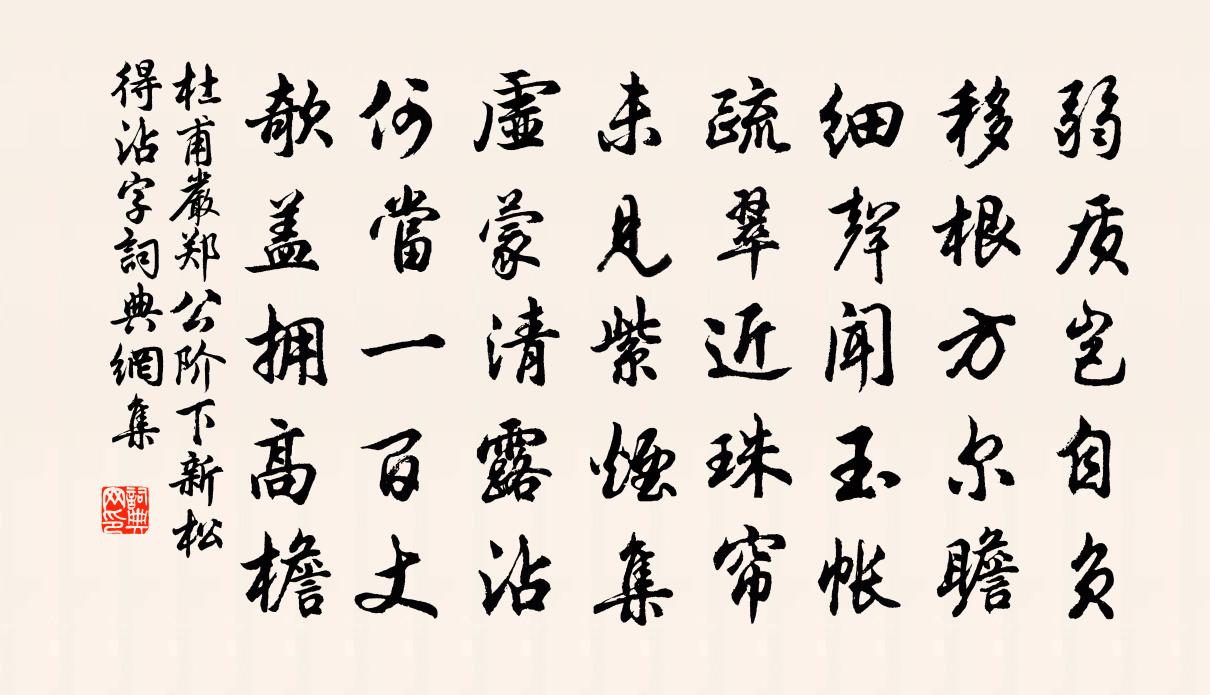 弱质岂自负
移根方尔瞻
细聲闻玉帐
疏翠近珠帘
未見紫煙集
虛蒙清露沾
何當一百丈
欹盖拥高檐
杜甫嚴郑公阶下新松
得沾字詞典網集
詞典
网印